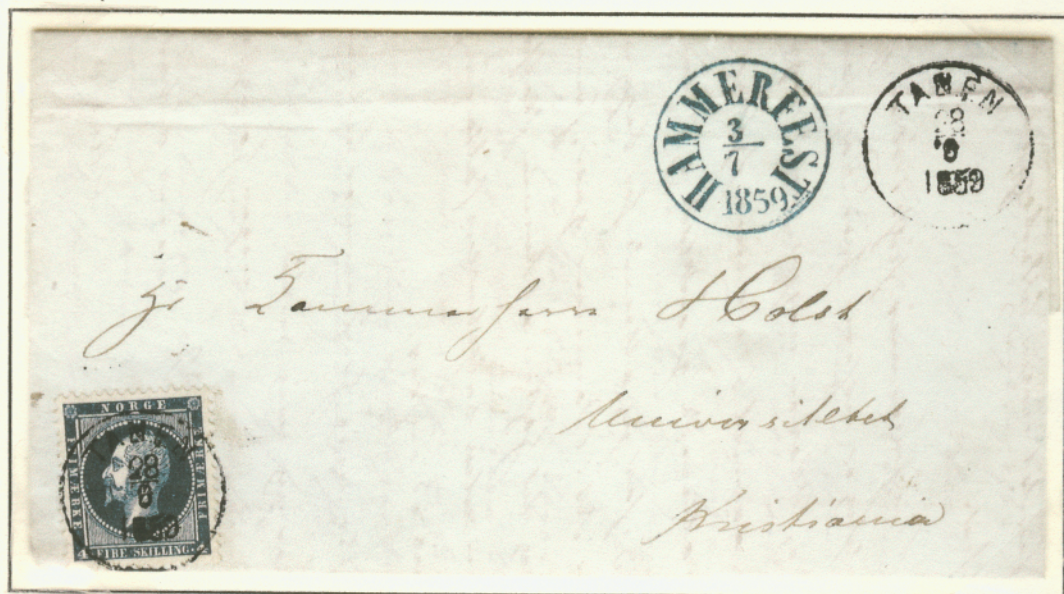 HAMMERFEST
3
7
1859
TANEN
28
6
1859
Hr Kammerherre Holst
Universitetet
Kristiania
NORGE
FRIMÆRKE
FRIMÆRKE
4 FIRE SKILLING. 4
TANEN
28
6
1859